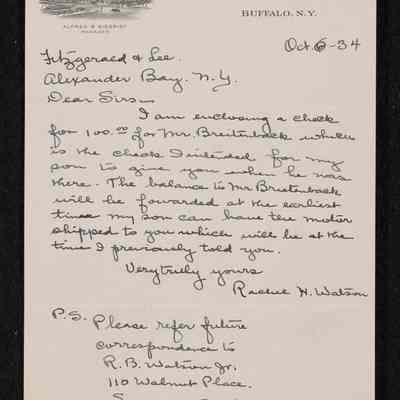 ALFRED B SIEGRIST
MANAGER
BUFFALO, N.Y.
Oct. 6-34
Fitzgerald & Lee.
Alexander Bay. N.Y.
Dear Sirs—
I am enclosing a check
for 100.00 for Mr. Breitenback which
is the check I intended for my
son to give you when he was
there. The balance to Mr Brietenback
will be fowarded at the earliest
time my son can have the motor
shipped to you which will be at the
time I previously told you.
Very truly yours
Rachel H. Watson
P.S. Please refer future
correspondence to
R.B. Watson Jr.
110 Walnut Place.